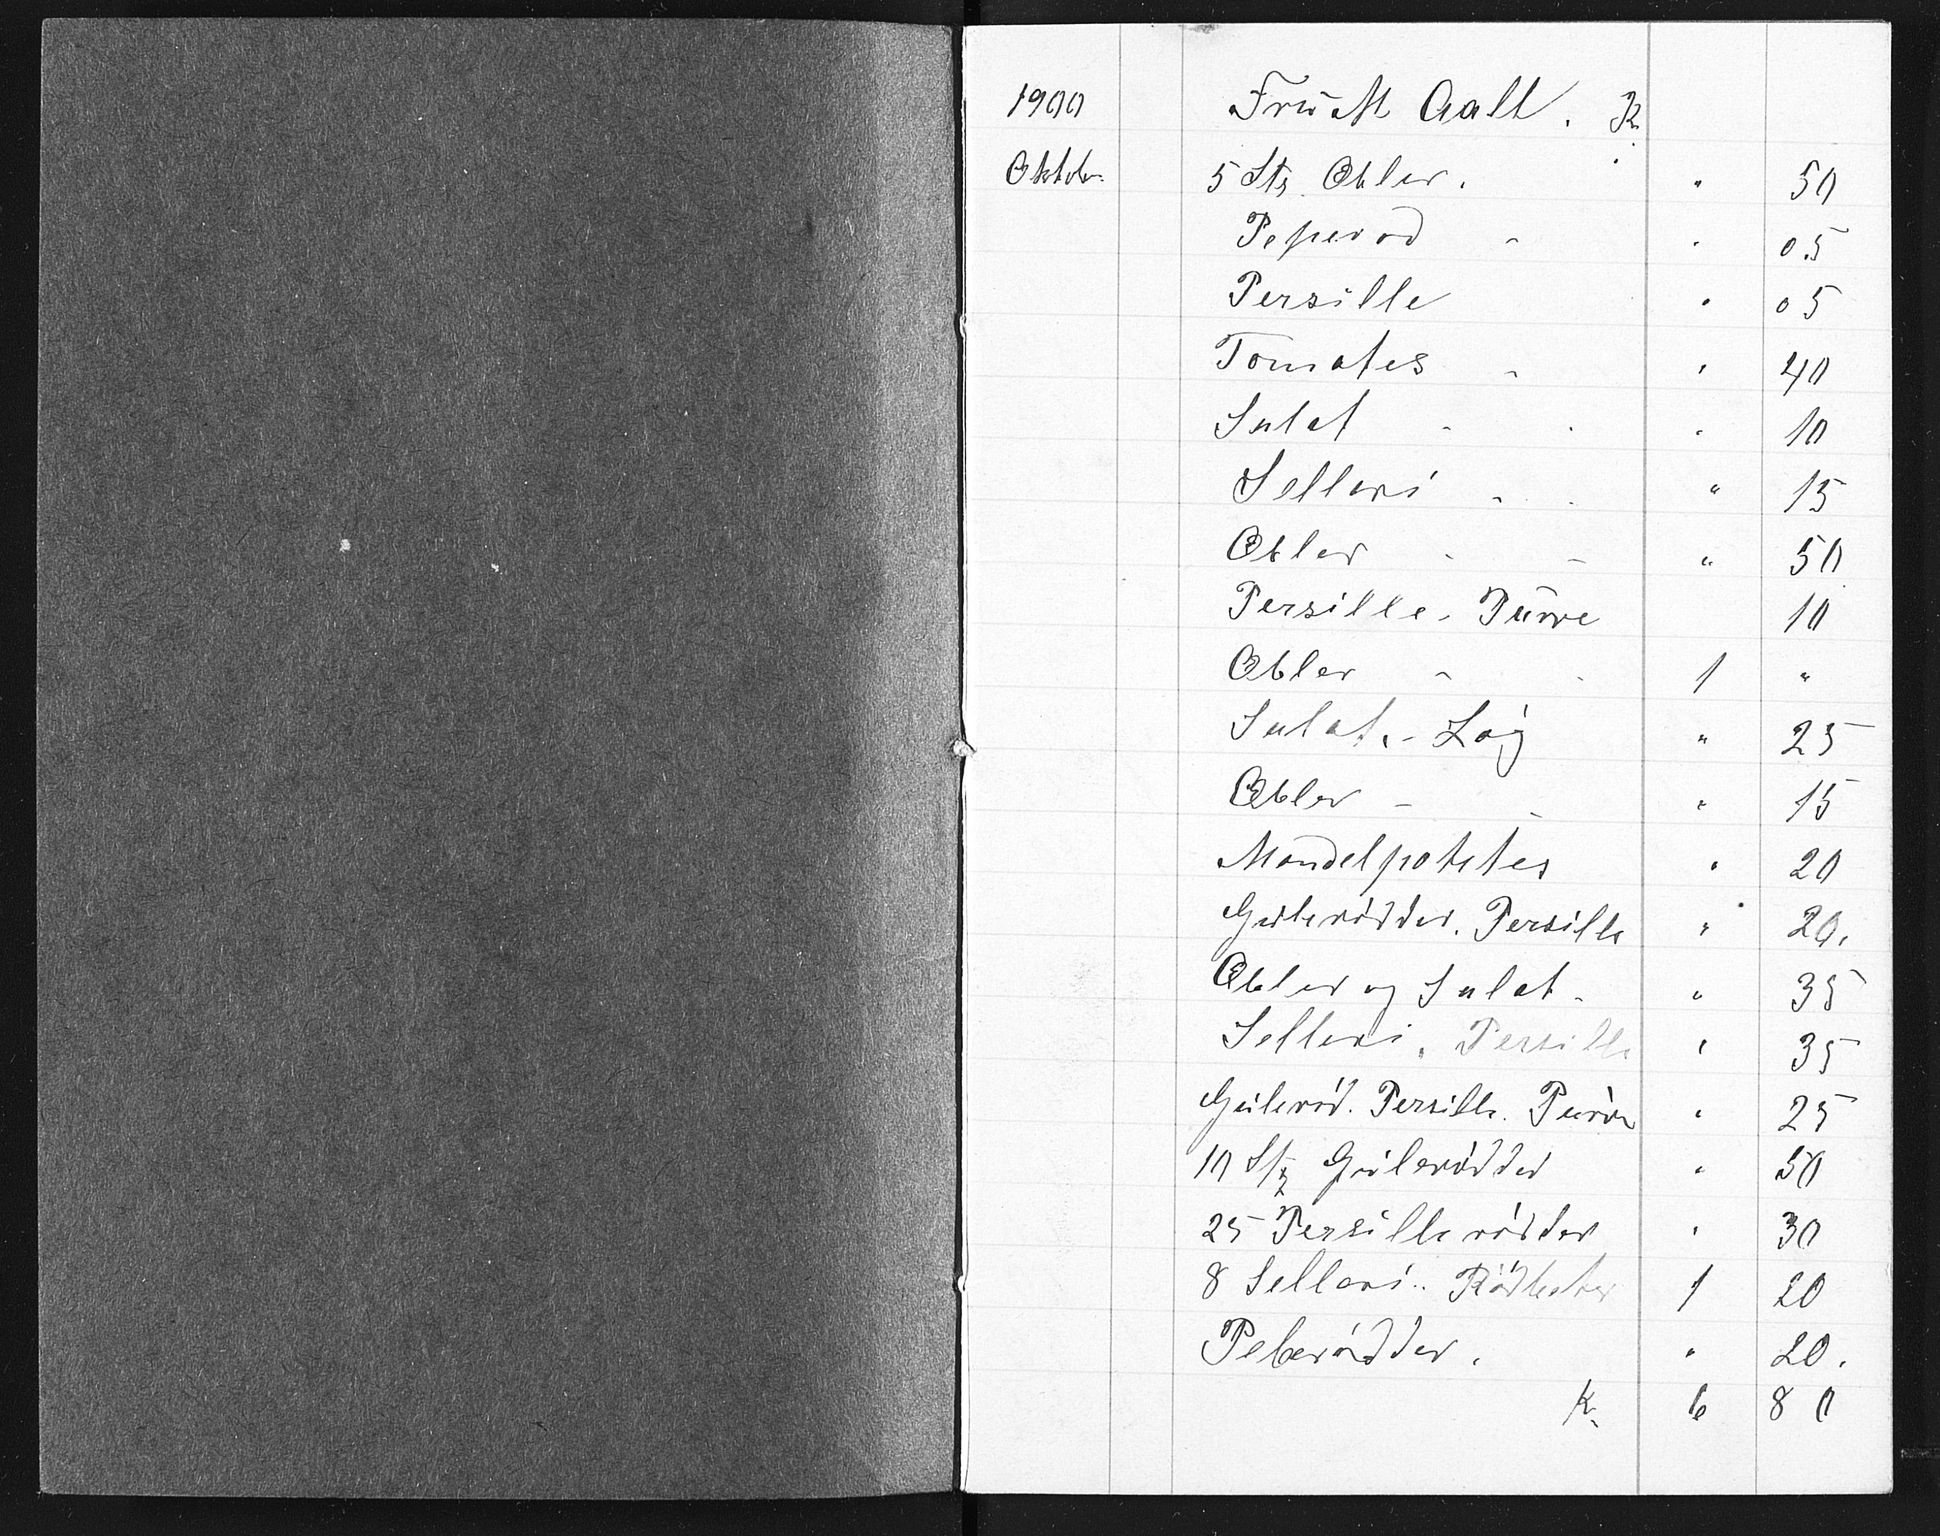 1900 Fru M Aall. K
Oktober 5 Stz. Æbler. " 50
Peperod - " 05
Persille " 05
Tomates - " 40
Salat - - " 10
Selleri - - " 15
Æbler - - " 50
Persille - Pürre 10
Æbler - - 1 "
Salat. - Løg " 25
Æbler - - " 15
Mandelpotetes " 20
Gülerødder. Persille " 20.
Æbler og Salat - " 35
Selleri. Persille " 35
Gülerød. Persille. Pürre " 25
10 Stz Gülerødder " 50
25 Persillerødder " 30
8 Selleri.. Rødbeter 1 20
Peberødder. " 20.
K. 6 80